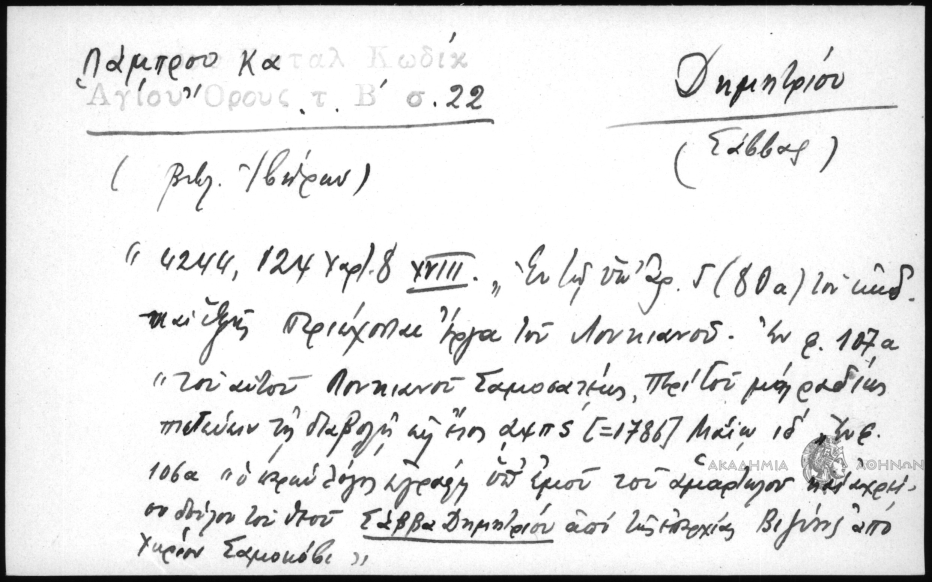 Λάμπρου Καταλ Κωδίκ
Ἁγίου Ὄρους τ. Β΄ σ. 22
Δημητρίου
(Σάββας)
(Βιβλ. Ἰβήρων)
"4244, 124 χαρτ. 8 XVIII. "Ἐν τῇ ὑπ' ἀρ. 5 (80α) τοῦ κώδ.
καὶ ἑξῆς περιέχονται ἔργα τοῦ Λουκιανοῦ. Ἐν φ. 107α
"τοῦ αὐτοῦ Λουκιανοῦ Σαμοσατέως, Περὶ τοῦ μὴ ῥαδίως
πιστεύειν τῇ διαβολῇ ἔτος αψπς [=1786] Μαΐῳ ιδ "Ἐν φ.
106α "ὁ λόγος ἐγράφη ὑπ' ἐμοῦ τοῦ ἁμαρτωλοῦ καὶ ἀχρεί-
ου δούλου τοῦ θεοῦ Σάββα Δημητρίου ἀπὸ τῆς ἐπαρχίας Βιζύης ἀπὸ
χωρίον Σαμοκόβι"
ΑΚΑΔΗΜΙΑ ΑΘΗΝΩΝ